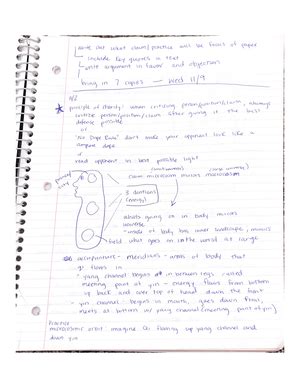 write out what claim/practice will be focus of paper
include key quotes + text
write argument in favor and objection
bring in 7 copies — Wed 11/9
principle of charity: when critizing person/position/claim, always
critize person/position/claim after giving it the best
defense possible
or
"No Dope Rule" don't make your opponent look like a
complete dope
or
read opponent in best possible light
claim microcosm mirrors macrocosm
3 dantians
(energy)
whats going on in body mirrors
universe
inside of body has inner landscape, mirrors
what goes on in the world at large
field
acupuncture - meridians - areas of body that
qi flows in
yang channel begins in between legs called
meeting point of yin - energy flows from bottom
up back and over top of head down the front
yin channel: begins in mouth, goes down front,
meets at bottom w/ yang channel (meeting point of yin)
Practice
microcosmic orbit: imagine Qi flowing up yang channel and
down yin